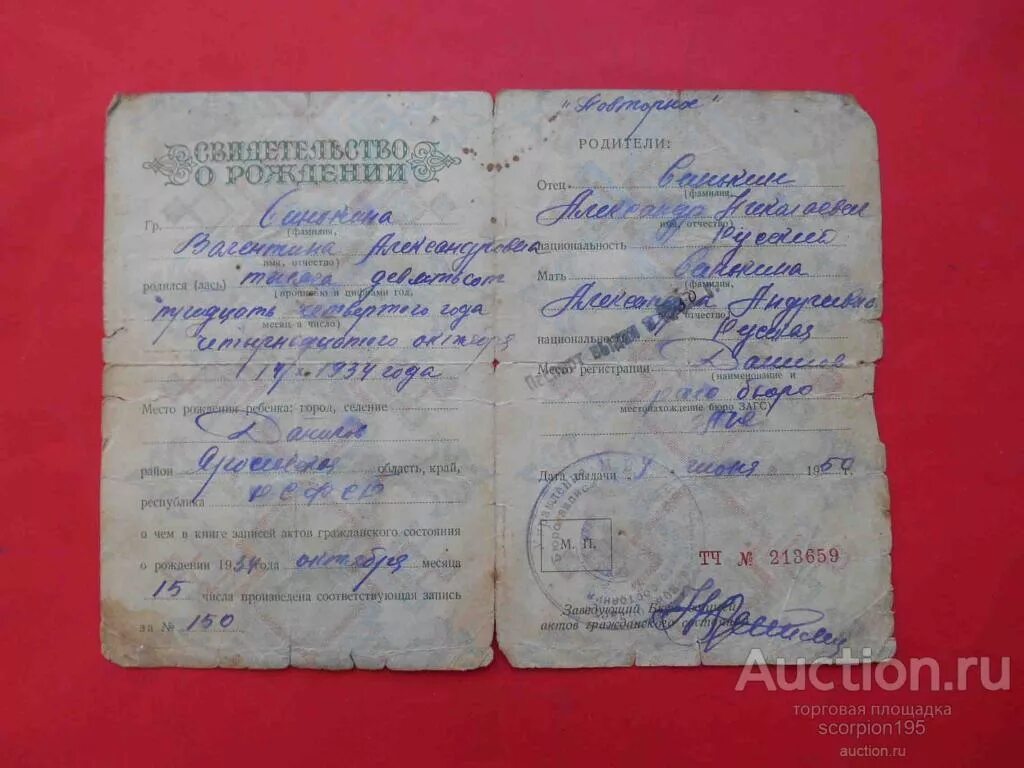 СВИДЕТЕЛЬСТВО
О РОЖДЕНИИ
Гр. Синькина
(фамилия,
Валентина Александровна
имя, отчество)
родился (лась) тысяча девятьсот
(прописью и цифрами год,
тридцать четвертого года
месяц и число)
четырнадцатого октября
14/X 1934 года
Место рождения ребенка: город, селение
Данилов
район Ярославская область, край,
республика РСФСР
о чем в книге записей актов гражданского состояния
о рождении 1934 года октября месяца
15 числа произведена соответствующая запись
за № 150
"Повторное"
РОДИТЕЛИ:
Отец Синькин
(фамилия,
Александр Николаевич
имя, отчество)
национальность Русский
Мать Синькина
(фамилия,
Александра Андреевна
отчество)
национальность Русская
Место регистрации Данилов
(наименование и
бюро
местонахождение бюро ЗАГС)
Дата выдачи 4 июня 1950 г.
М. П.
ТЧ № 213659
Заведующий Бюро записей
актов гражданского состояния
ПАСПОРТ ВЫДАН
Auction.ru
торговая площадка
scorpion195
auction.ru